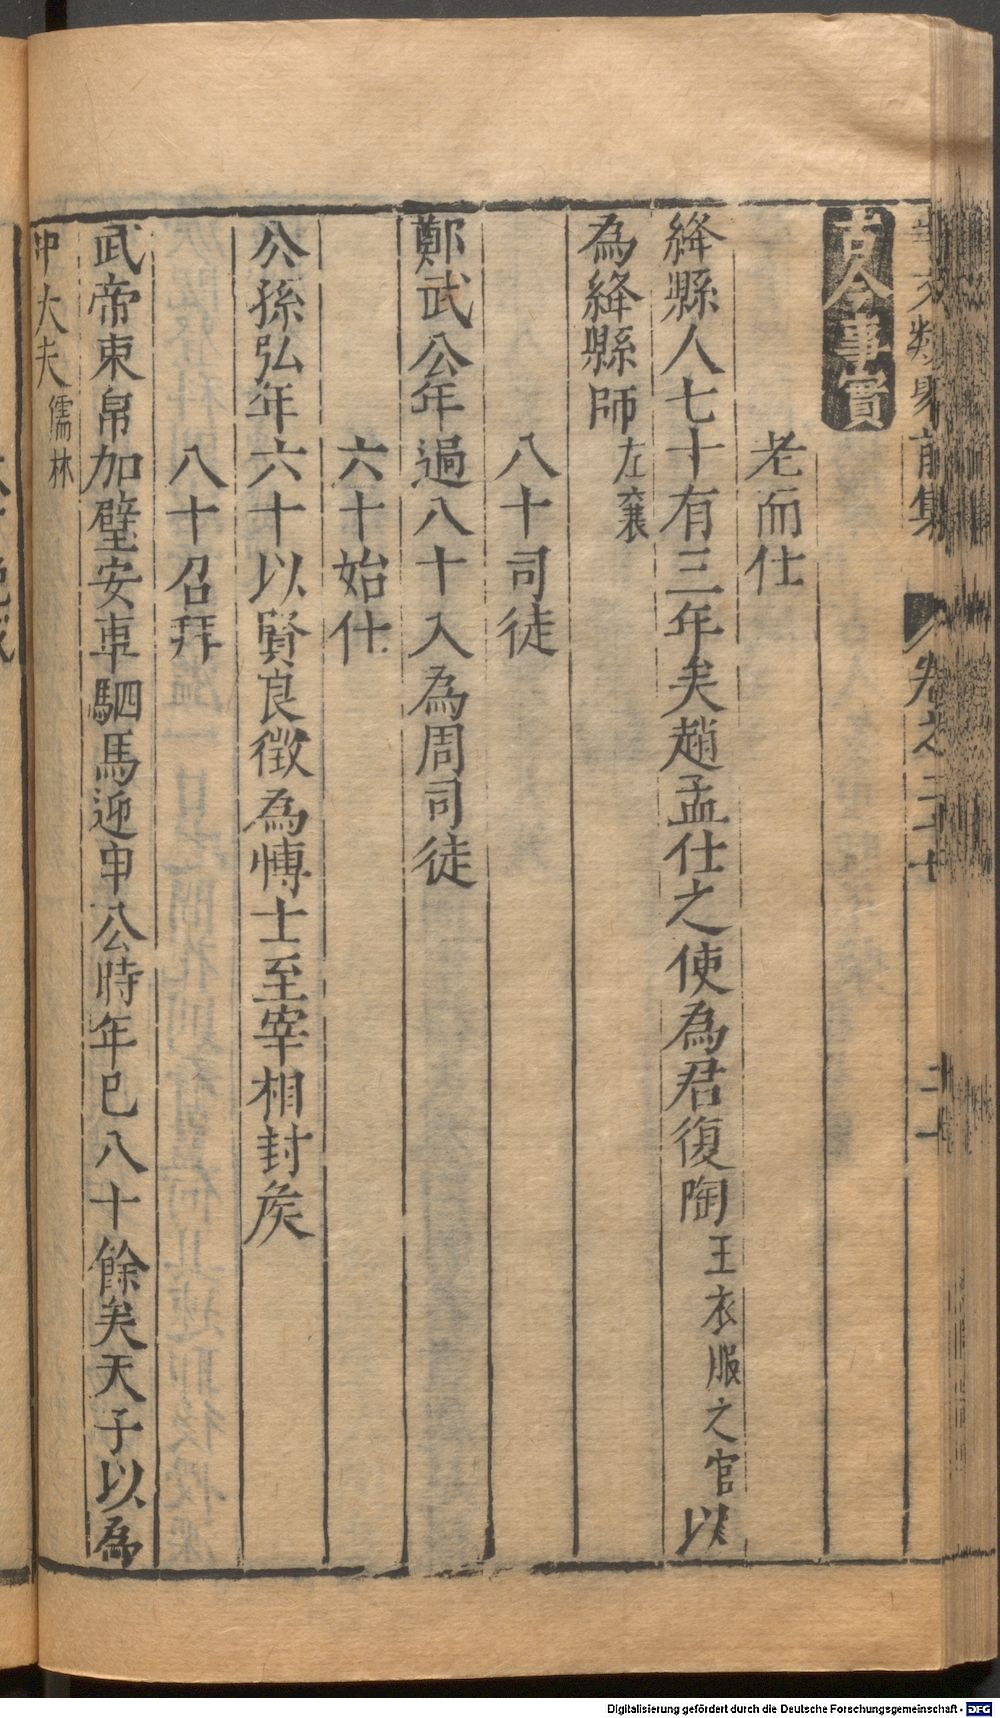 事文類聚前集 卷之二十七 二十一
古今事實
老而仕
絳縣人七十有三年矣趙孟仕之使為君復陶王衣服之官以
為絳縣師左襄
八十司徒
鄭武公年過八十入為周司徒
六十始仕
公孫弘年六十以賢良徵為愽士至宰相封矦
八十召拜
武帝束帛加璧安車駟馬迎申公時年已八十餘矣天子以為
中大夫儒林
Digitalisierung gefördert durch die Deutsche Forschungsgemeinschaft - DFG